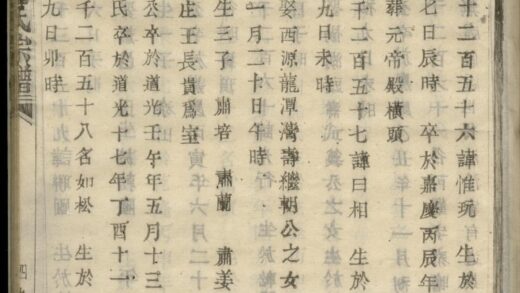 十二百五十六 諱惟玩 生於
七日辰時 卒於嘉慶丙辰年
葬元帝殿橫頭
千二百五十七 諱曰相 生於
九日未時
娶西源龍潭灣壽繼朝公之女
一月二十日午時
生三子 肅培 肅蘭 肅姜
庄王長貴爲室
公卒於道光壬午年五月十三
氏卒於道光十七年丁酉十一
千二百五十八名如松 生於
九日卯時
氏宗譜
四